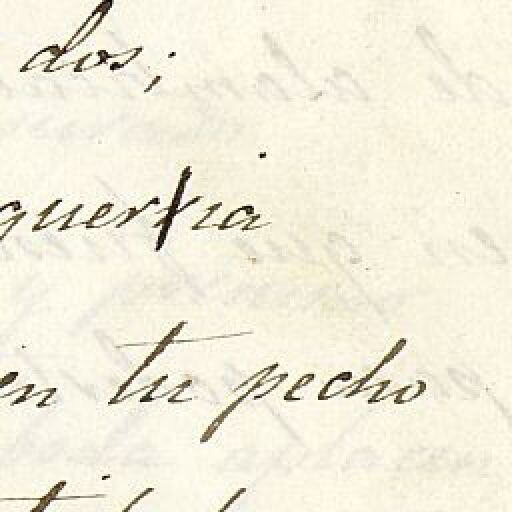 dos;
queria
en tu pecho